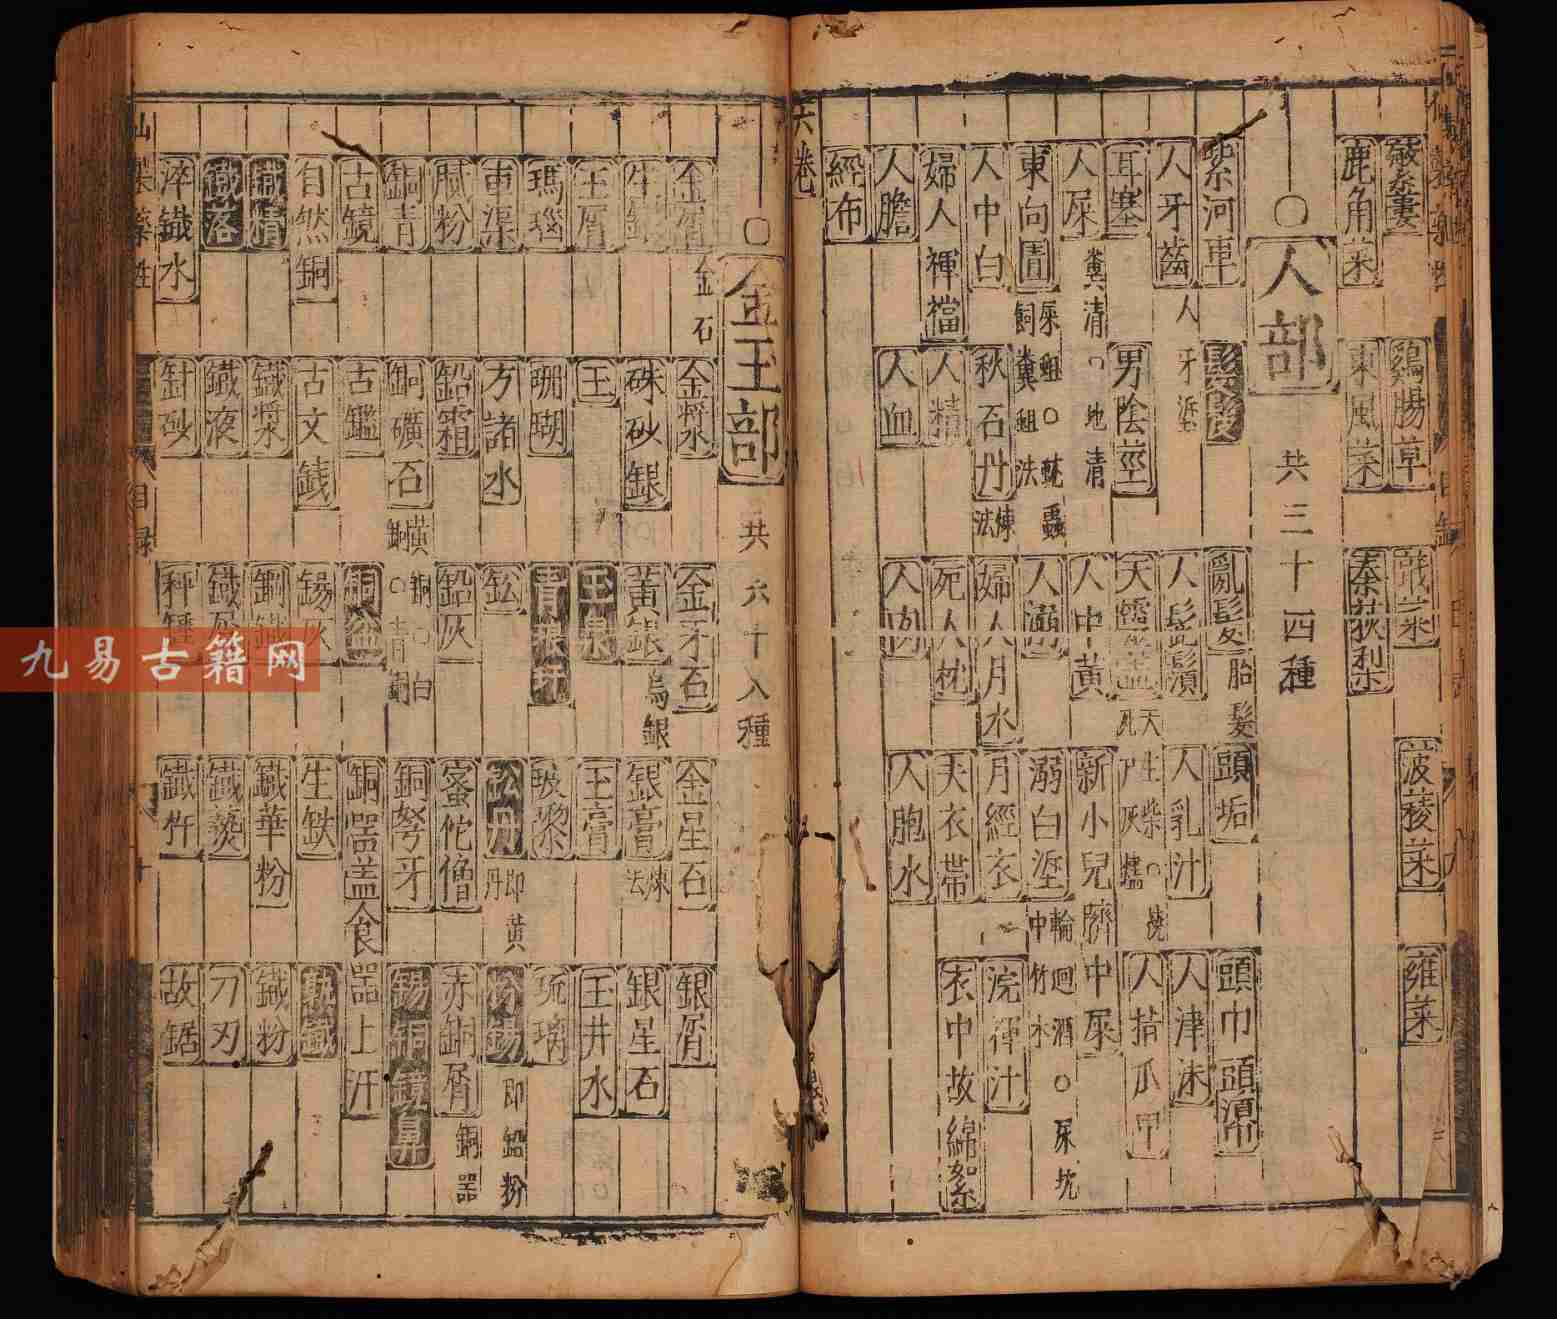 蘩蔞 鷄腸草 蕺菜 菠薐菜 蕹菜
鹿角菜 東風菜 秦荻梨
○人部 共三十四種
紫河車 髲髢 亂髮 胎髮 頭垢 頭巾頭㡌
人牙齒 人牙垽 人髭鬚 人乳汁 人津沫
耳塞 男陰莖 天靈蓋 天生 人指爪甲
人屎 糞清○地清 人中黃 新小兒臍中屎
東向圊 人溺 溺白垽
人中白 秋石丹 煉法 婦人月水 月經衣 浣褌汁
婦人褌襠 人精 死人枕 夫衣帶 衣中故綿絮
人膽 人血 人肉 人胞水
經布
六卷
○金玉部 共六十八種
金屑 金石 金漿水 金牙石 金星石 銀屑
生銀 硃砂銀 黃銀 烏銀 銀膏 煉法 銀星石
玉屑 玉 玉泉 玉膏 玉井水
瑪瑙 珊瑚 青琅玕 玻瓈 琉璃
車渠 方諸水 鉛丹 即黃丹 粉錫 即鉛粉
膩粉 鉛霜 鉛灰 蜜佗僧 赤銅屑 銅器
銅青 銅礦石 銅弩牙 錫銅鏡鼻
古鏡 古鑑 銅盆 銅器蓋食器上汗
自然銅 古文錢 錫灰 生鉄
鐵精 鐵漿 鐵華粉 鐵粉
鐵落 鐵液 鐵爇 刀刃
淬鐵水 針砂 秤錘 鐵杵 故鋸
目錄
九易古籍网